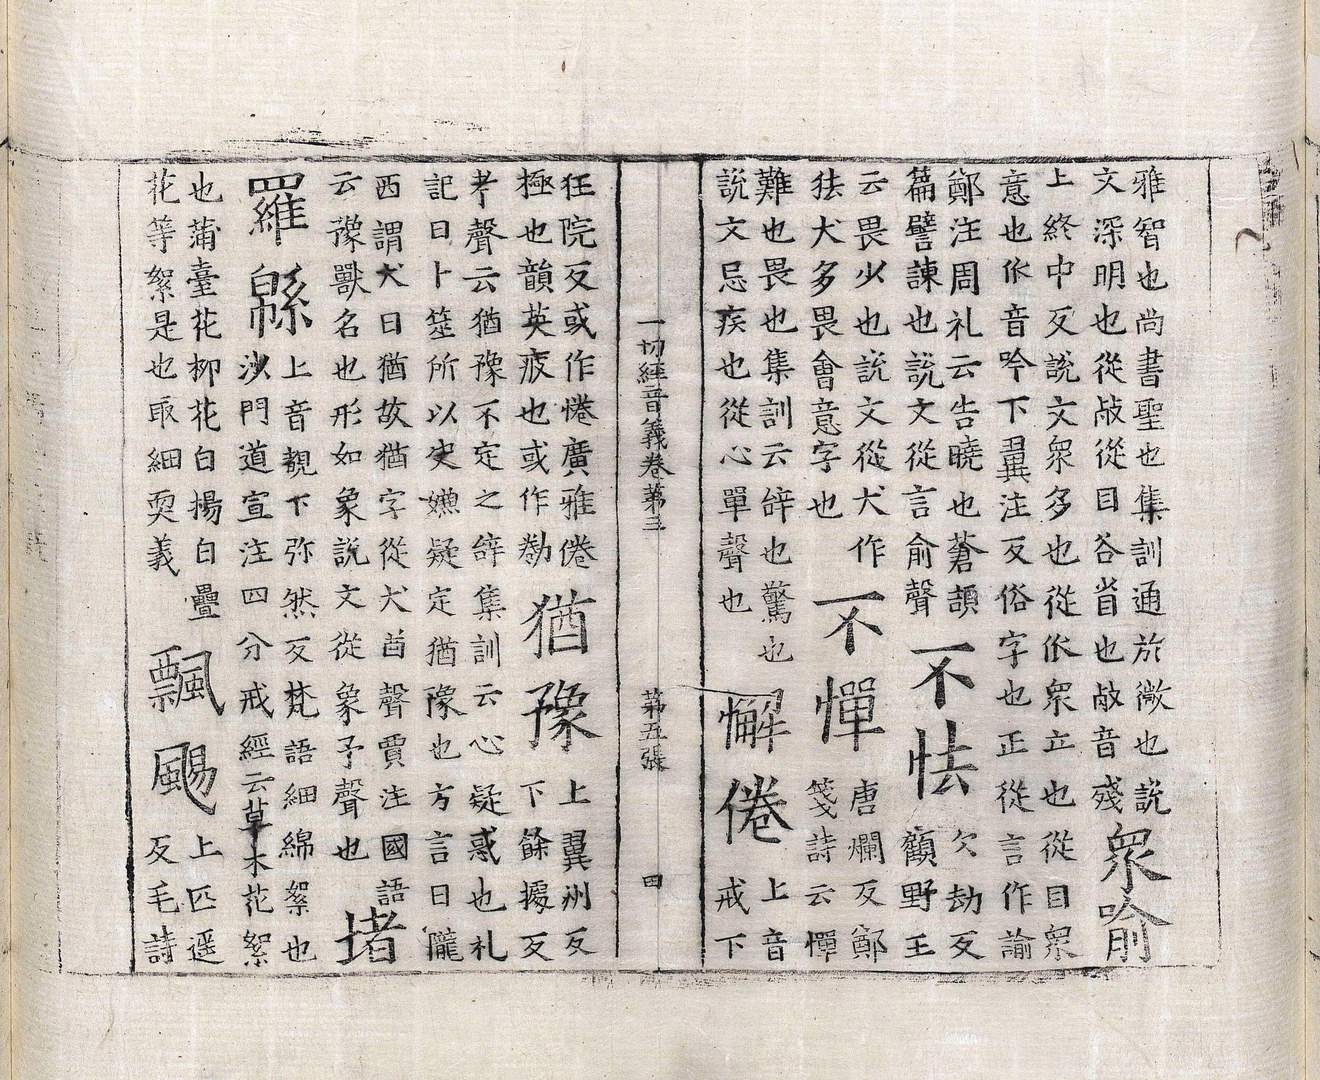 雅智也尚書聖也集訓通於微也說
文深明也從㕡從目谷省也㕡音殘
衆喻
上終中反說文衆多也從㐺衆立也從目衆
意也㐺音吟下翼注反俗字也正從言作諭
鄭注周礼云告曉也蒼頡
篇譬諫也說文從言俞聲
不怯
欠劫反
顧野王
云畏少也說文從犬作
㹤犬多畏會意字也
不憚
唐爛反鄭
箋詩云憚
難也畏也集訓云辝也驚也
說文忌疾也從心單聲也
懈倦
上音
戒下
一切經音義卷苐三
苐五張
田
狂院反或作惓廣雅倦
極也韻英疲也或作勌
猶豫
上翼州反
下餘據反
考聲云猶豫不定之辝集訓云心疑惑也礼
記曰卜筮所以史嫌疑定猶豫也方言曰隴
西謂犬曰猶故猶字從犬酋聲賈注國語
云豫獸名也形如象說文從象予聲也
堵羅緜
上音覩下弥然反梵語細綿絮也
沙門道宣注四分戒經云草木花絮
也蒲臺花柳花白楊白疊
花等絮是也取細耎義
飄颺
上匹遥
反毛詩